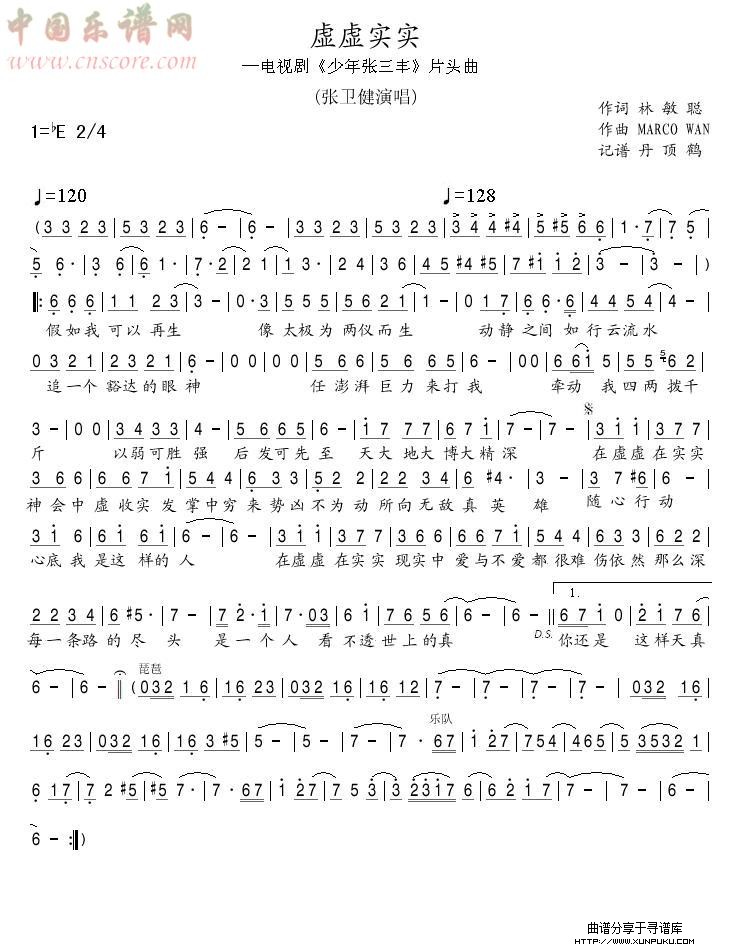 中国乐谱网
www.cnscore.com
虚虚实实
—电视剧《少年张三丰》片头曲
(张卫健演唱)
作词 林 敏 聪
1=♭E 2/4
作曲 MARCO WAN
记谱 丹 顶 鹤
♩=120 ♩=128
(3 3 2 3|5 3 2 3|6 –|6 –|3 3 2 3|5 3 2 3|3 4 4 #4|5 #5 6 6|1· 7|7 5|
5 6·|3 6|6 1·|7· 2|2 1|1 3·|2 4 3 6|4 5 #4 #5|7 #1 1 2|3 –|3 –)
‖: 6 6 6|1 1 2 3|3 –|0· 3|5 5 5|5 6 2 1|1 –|0 1 7|6 6· 6|4 4 5 4|
假如我 可以 再生 像 太极为 两仪而生 动静 之间 如 行云流水
0 3 2 1|2 1 2 1|6 –|0 0|0 0|5 5 5|5 6 6 5|5 –|0 0|6 6 1|5 5 5|5 6 2|
追一个 豁达的眼神 任 澎湃 巨力 来打我 牵动 我四两拨千
3 –|0 0|3 4 3 3|4 –|5 6 5 6|1 7 7 7|6 7 1|7 –|7 –|3 1 1|3 7 7|
斤 以弱可胜 强 后 发可先至 天大 地大 博大精深 在虚虚在实实
3 6 6|6 6 7 1|5 5 4|6 3 3|5 2 2|2 2 3 4|6 #4·|3 –|3 7 #6|
神会中 虚收实发 掌中穷 来势凶 不为动 所向无敌真 英 雄 随心行动
3 1 6|1 1 6|6 1|6 –|6 –|3 1 1|3 7 7|3 6 6|6 6 7 1|5 4 4|6 3 3|6 2 2|
心底 我是这 样的人 在虚虚 在实实 现实中 爱与不爱都很难 伤依然 那么深
1.
2 2 3 4|6 #5·|7 –|7 2· 1|7· 03|6 1|7 6 5 6|6 –|6 –‖6 7 1 0|2 1 7 6|
每一条路 的 尽 头 是一个人 看 不透 世上的真 D.S. 你还是 这样天真
琵琶
6 –|6 –‖(0 3 2 1 6|1 6 2 3|0 3 2 1 6|1 6 1 2|7 –|7 –|7 –|7 –|0 3 2 1 6|
乐队
1 6 2 3|0 3 2 1 6|1 6 3 #5|5 –|5 –|7 –|7 · 6 7|1 2 7|7 5 4|4 6 5|5 3 5 3 2 1|
6 1 7|7 2 #5|#5 7·|7· 6 7|1 2 7|7 5 3|3 2 3 1 7|6 1 2|7 –|7 –|7 –|7 –|6 –|
6 – :‖)
曲谱分享于寻谱库
HTTP://WWW.XUNPUKU.COM